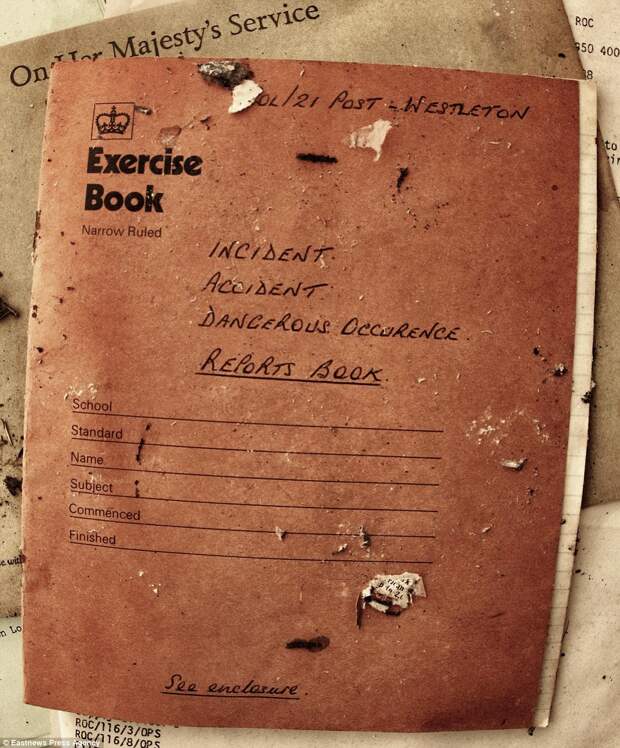 On Her Majesty's Service
ROC
950 400
8
to
OL/21 POST - WESTLETON
Exercise
Book
Narrow Ruled
INCIDENT.
ACCIDENT.
DANGEROUS OCCURENCE.
REPORTS BOOK.
School
Standard
Name
Subject
Commenced
Finished
See enclosure.
ROC/116/3/OPS
ROC/116/8/OPS
© Eastnews Press Agency